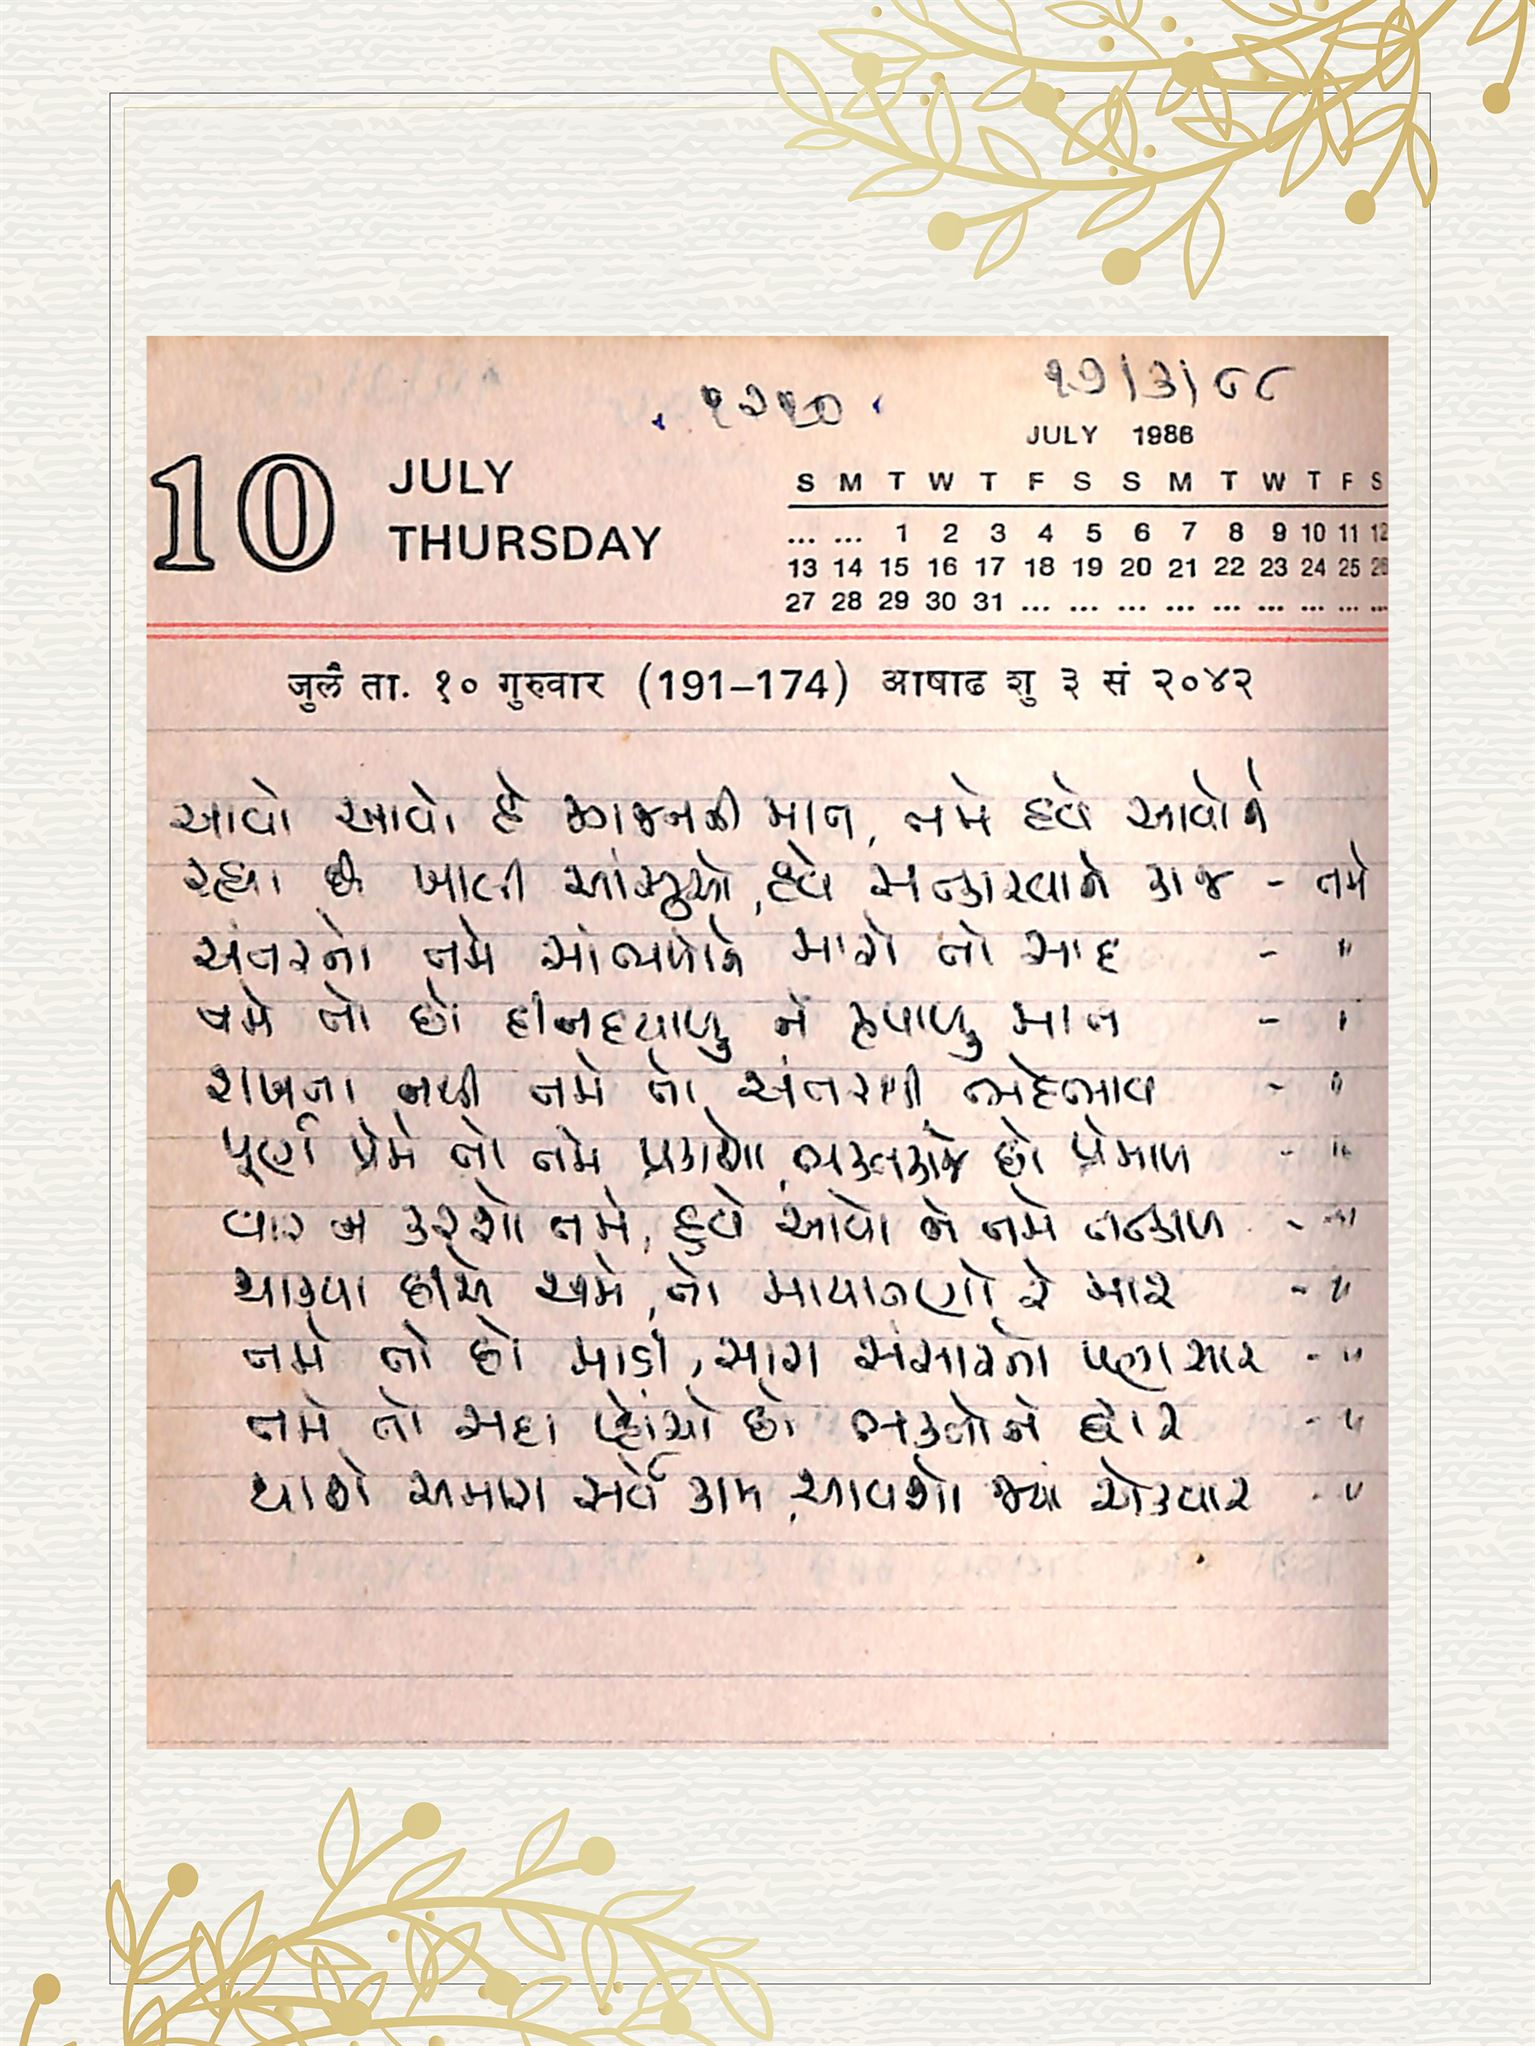 ૧૭|૩|૮૮
JULY 1986
10 JULY
THURSDAY
S M T W T F S S M T W T F S
... ... 1 2 3 4 5 6 7 8 9 10 11 12
13 14 15 16 17 18 19 20 21 22 23 24 25 26
27 28 29 30 31 ... ... ... ... ... ... ... ... ...
जुलै ता. १० गुरुवार (191–174) आषाढ शु ३ सं २०४२
આવો આવો હે જગજનની માત, તમે હવે આવોને
રહ્યા છે ખાલી આંસુઓ, હવે સત્કારવાને કાજ - તમે
અંતરનો તમે સાંભળોને મારો તો સાદ - "
તમે તો છો દીનદયાળુ ને કૃપાળુ માત - "
રાખતા નથી તમે તો અંતરથી ભેદભાવ - "
પૂર્ણ પ્રેમે તો તમે પ્રકાશો, ભક્તકાજે છો પ્રેમાળ - "
વાર ન કરશો તમે, હવે આવો ને તમે તત્કાળ - "
થાક્યા છીએ અમે, તો માયાતણો રે માર - "
તમે તો છો માડી, સારા સંસારનો પણ સાર - "
તમે તો સદા પ્હોંચો છો ભક્તોને દ્વાર - "
થાશે અમારા સર્વે કામ, આવશો જ્યાં એકવાર - "